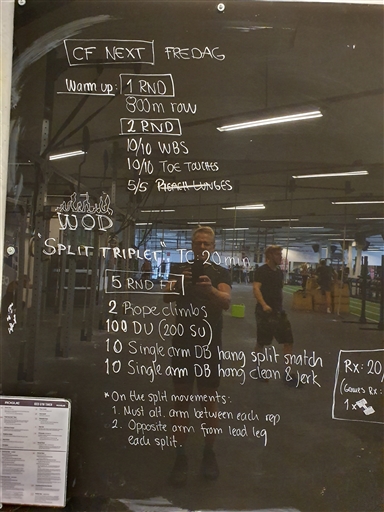 CF NEXT FREDAG
Warm up: 1 RND
800m row
2 RND
10/10 WBS
10/10 TOE TOUCHES
5/5 LUNGES
WOD
"SPLIT TRIPLET" TC: 20 min
5 RND FT
2 Rope climbs
100 DU (200 SU)
10 Single arm DB hang split snatch
10 Single arm DB hang clean & jerk
Rx: 20,
1x
*On the split movements:
1. Must alt. arm between each rep
2. Opposite arm from lead leg
each split.